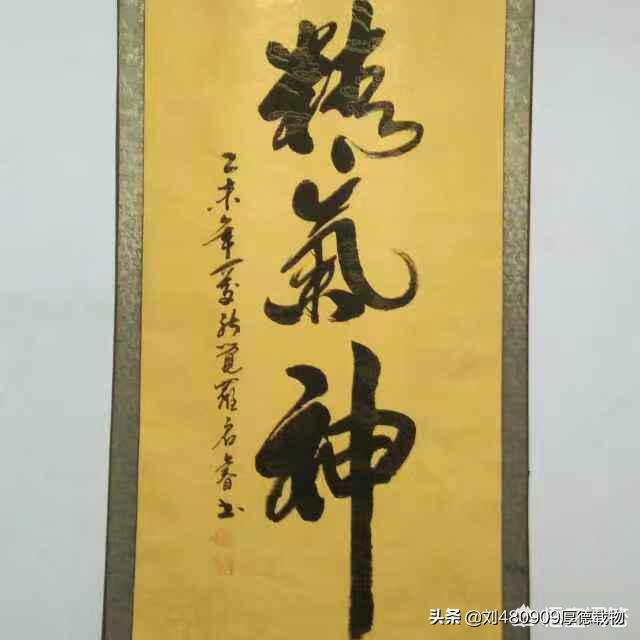 精氣神
乙未年愛新覺羅睿书
头条 @刘480909厚德载物